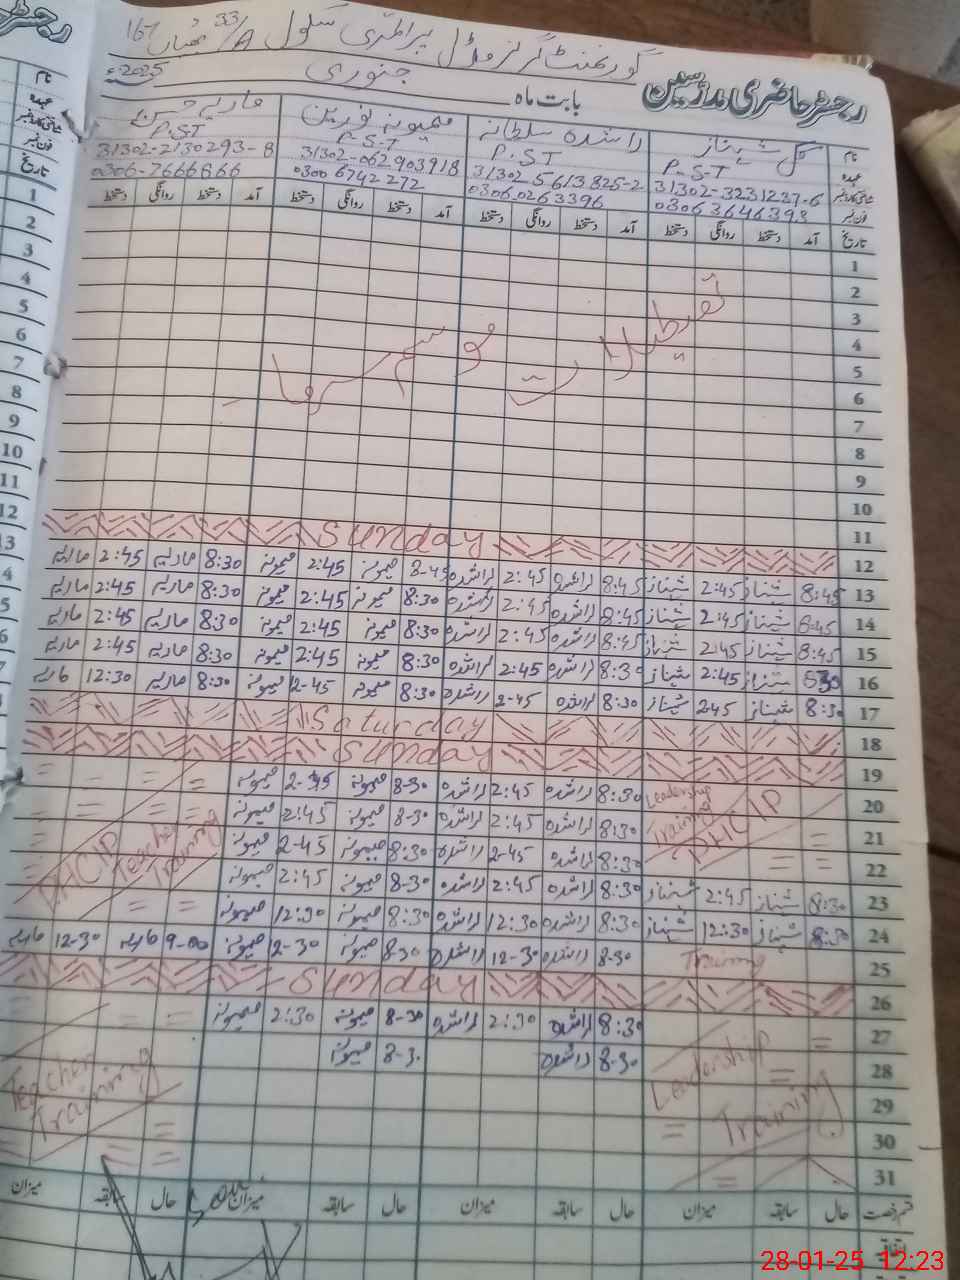 گورنمنٹ گرلز ماڈل پرائمری سکول 33/A 167
رجسٹر حاضری مدرسین بابت ماہ جنوری 2025ء
نام گل شہناز راشدہ سلطانہ میمونہ نورین ماریہ
عہدہ P.S.T P.S.T P.S.T P.S.T
31302-3231237-6 31302-5613825-2 31302-062903918 31302-2130293-8
فون نمبر 03063646398 03060263396 03006742272 0306-7666866
تاریخ آمد دستخط روانگی دستخط آمد دستخط روانگی دستخط آمد دستخط روانگی دستخط آمد دستخط روانگی دستخط
1
2
3
4
5
6
7
8
9
10
تعطیلات موسم سرما
11
12 Sunday
13 8:45 شہناز 2:45 شہناز 8:45 راشدہ 2:45 راشدہ 8-45 میمونہ 2:45 میمونہ 8:30 ماریہ 2:45 ماریہ
14 8:45 شہناز 2:45 شہناز 8:45 راشدہ 2:45 راشدہ 8:30 میمونہ 2:45 میمونہ 8:30 ماریہ 2:45 ماریہ
15 8:45 شہناز 2:45 شہناز 8:45 راشدہ 2:45 راشدہ 8:30 میمونہ 2:45 میمونہ 8:30 ماریہ 2:45 ماریہ
16 830 شہناز 2:45 شہناز 8:30 راشدہ 2:45 راشدہ 8:30 میمونہ 2:45 میمونہ 8:30 ماریہ 2:45 ماریہ
17 8:30 شہناز 245 شہناز 8:30 راشدہ 2-45 راشدہ 8:30 میمونہ 2-45 میمونہ 8:30 ماریہ 12:30 ماریہ
18 Saturday
19 Sunday
20 Leadership Training PHCIP 8:30 راشدہ 2:45 راشدہ 8-30 میمونہ 2-45 میمونہ
21 8:30 راشدہ 2:45 راشدہ 8-30 میمونہ 2:45 میمونہ PHCIP Teacher Training
22 8:30 راشدہ 2-45 راشدہ 8:30 میمونہ 2-45 میمونہ
23 8:30 شہناز 2:45 شہناز 8:30 راشدہ 2:45 راشدہ 8-30 میمونہ 2:45 میمونہ
24 8:30 شہناز 12:30 شہناز 8:30 راشدہ 12:30 راشدہ 8:30 میمونہ 12:30 میمونہ
25 Training 8-30 راشدہ 12-30 راشدہ 8-30 میمونہ 12-30 میمونہ 9-00 ماریہ 12-30 ماریہ
26 Sunday
27 8:30 راشدہ 2:30 راشدہ 8-30 میمونہ 2:30 میمونہ
28 Leadership Training 8-30 راشدہ 8-30 میمونہ Teacher Training
29
30
31
قسم رخصت حال سابقہ میزان حال سابقہ میزان حال سابقہ میزان حال سابقہ میزان
اتفاقیہ
28-01-25 12:23